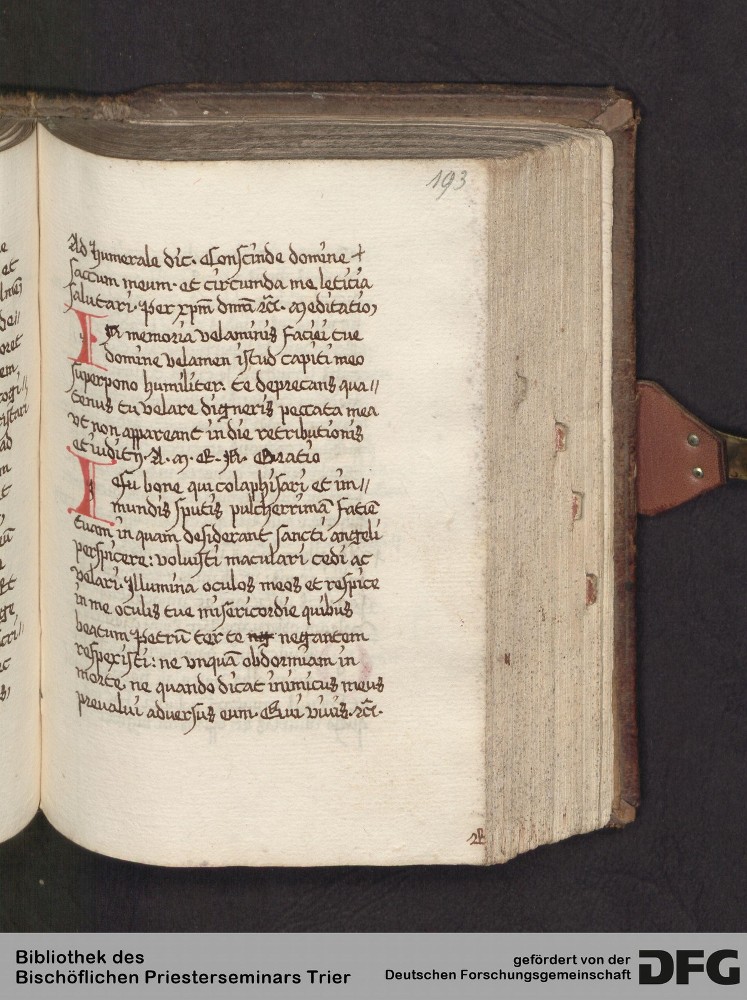 193
Ad humerale dic. Conscinde domine +
saccum meum. et circunda me leticia
salutari. Per xpm dnm rc̄. Meditatio,
In memoria velaminis faciei tue
domine velamen istud capiti meo
superpono humiliter. te deprecans qua//
tenus tu velare digneris peccata mea
vt non appareant in die retributionis
et iudicij. A. M. E. N. Oratio
Iesu bone qui colaphisari et im//
mundis sputis pulcherrimā faciē
tuam in quam desiderant sancti angeli
perspicere: voluisti maculari cedi ac
velari. Illumina oculos meos et respice
in me oculis tue misericordie quibus
beatum Petrū ter te neg negantem
respexisti: ne vnquā obdormiam in
morte, ne quando dicat inimicus meus
preualui aduersus eum. Qui viuis. rc̄.
Bibliothek des
Bischöflichen Priesterseminars Trier
gefördert von der
Deutschen Forschungsgemeinschaft
DFG